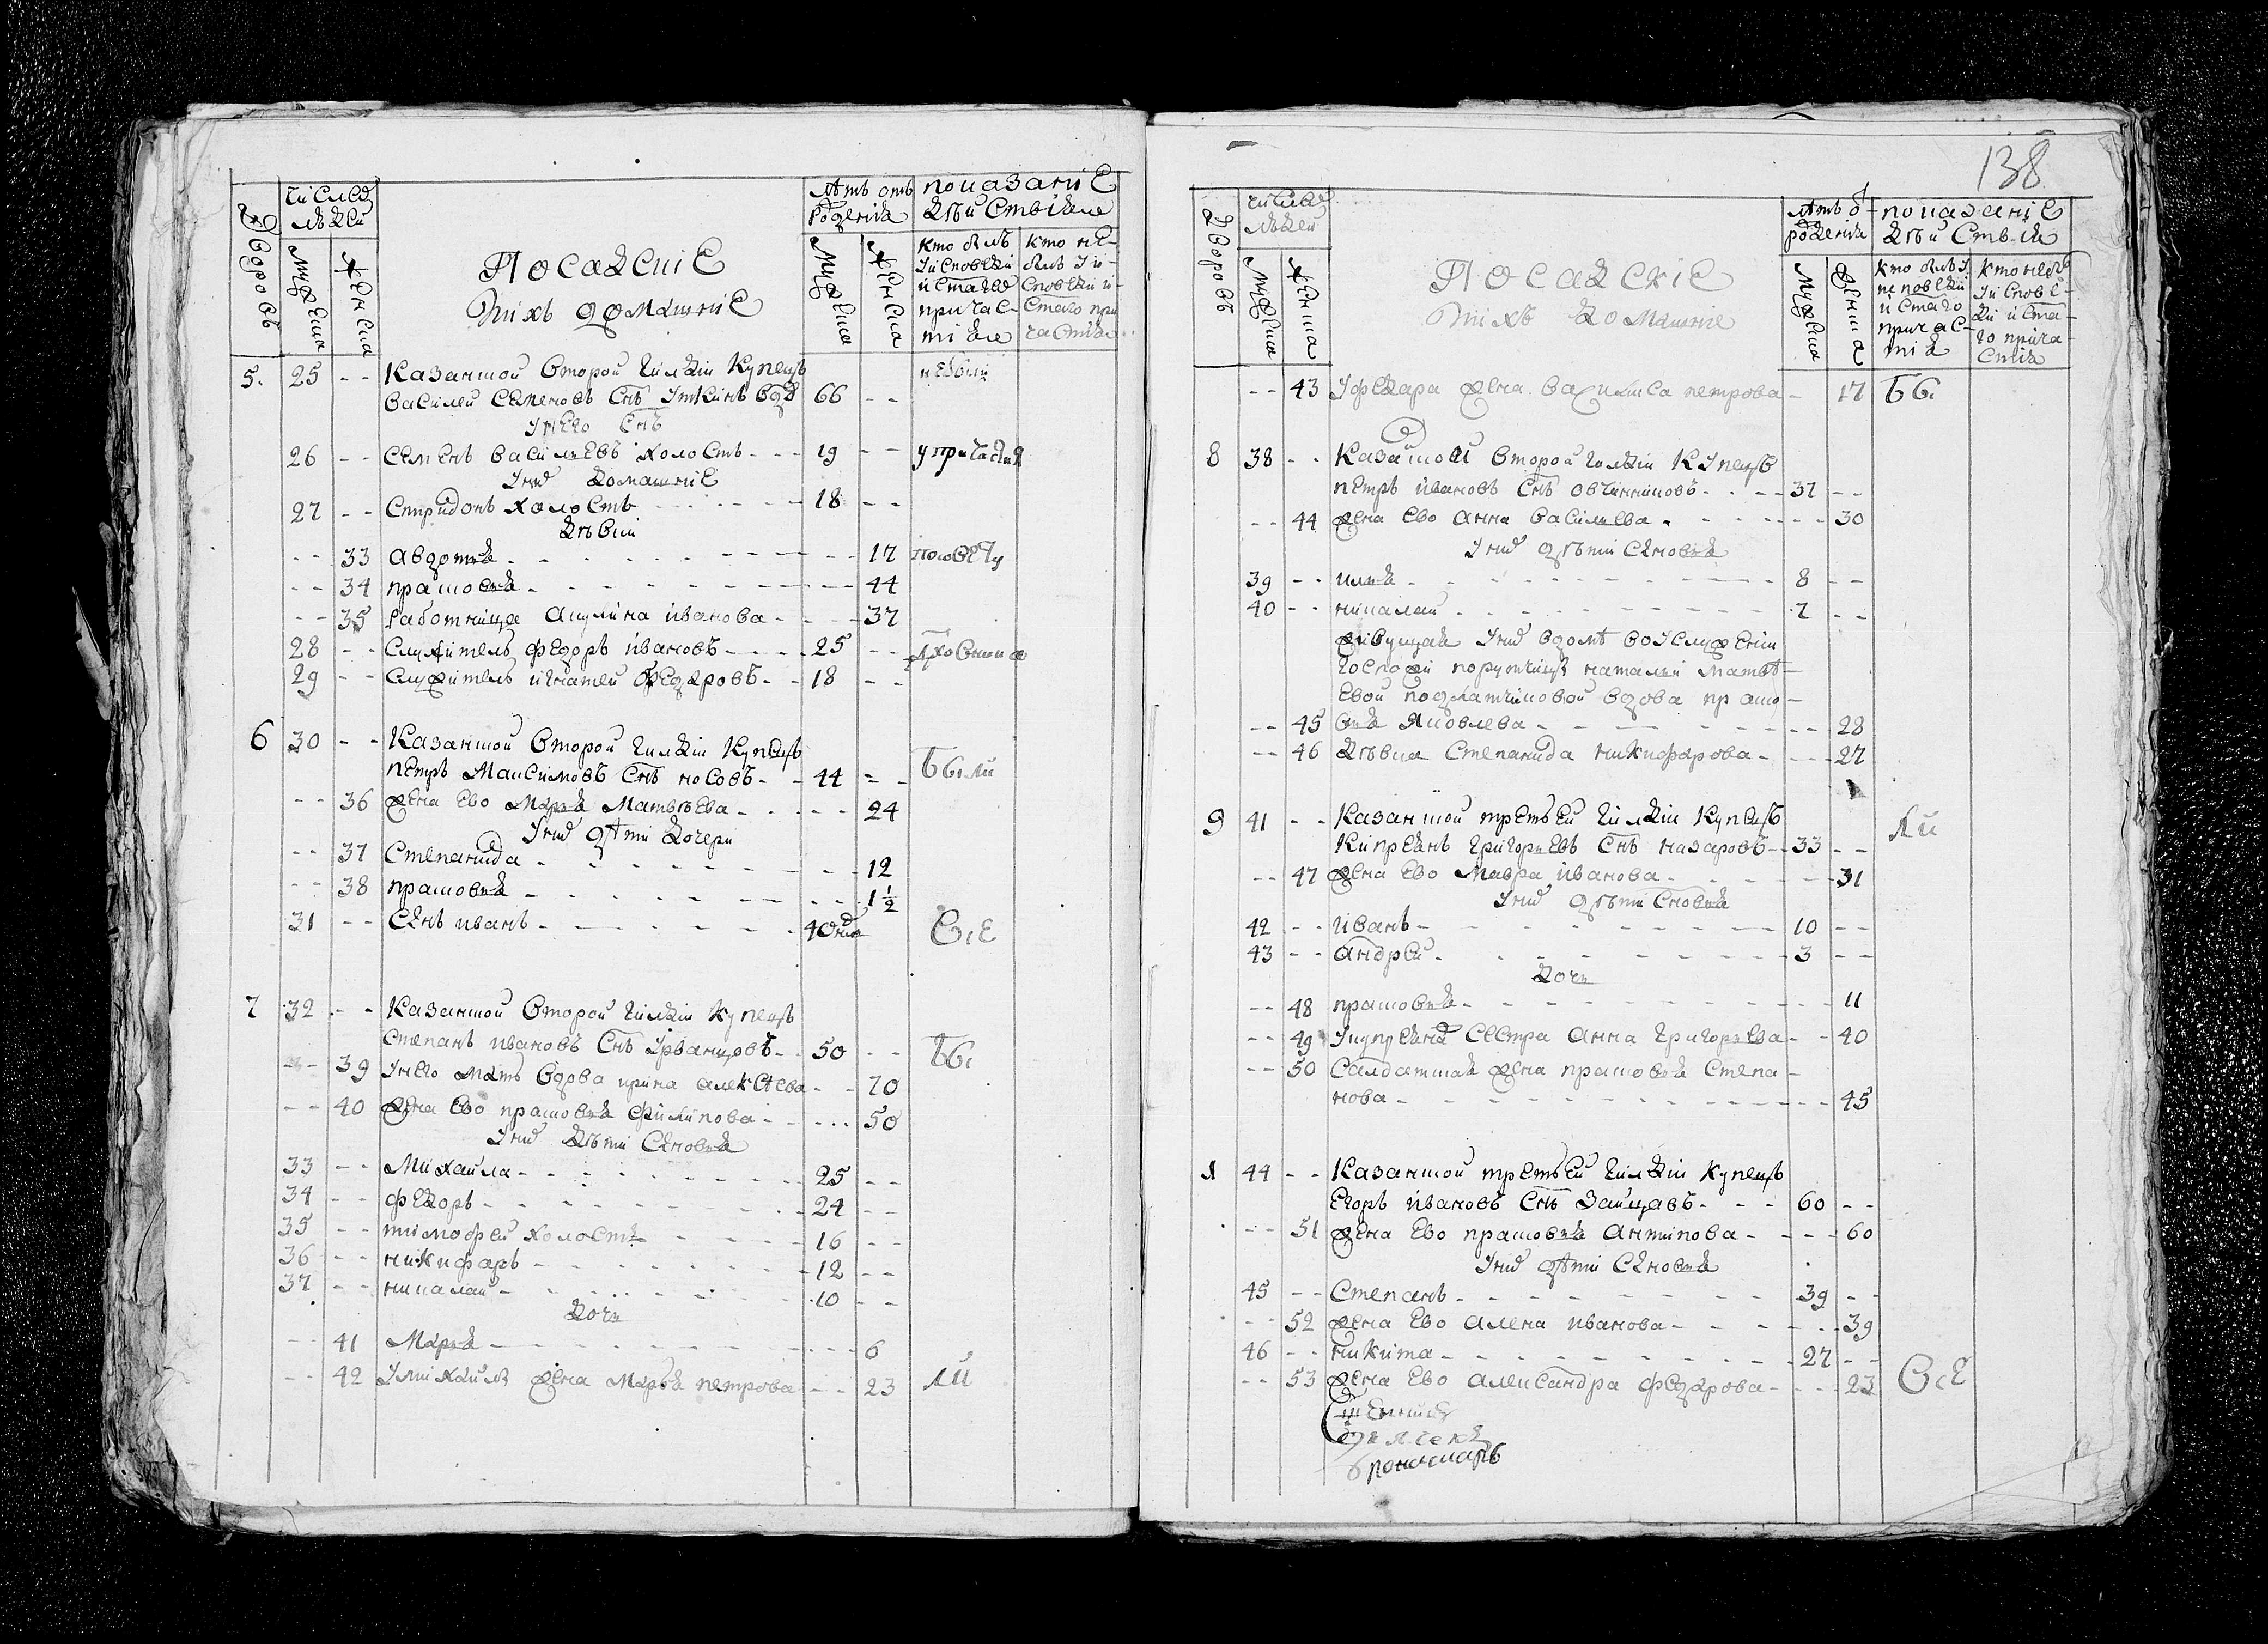 138
Дворовъ
Число
людей
Мужеска
Женска
Посадскіе
и ихъ домашніе
Лѣтъ отъ
рожденія
Мужеска
Женска
показаніе
дѣйствія
кто былъ
у исповѣди
и святаго
причас-
тія
кто не
былъ у и-
сповѣди и
святаго при
частія
5. 25 - - Казанской второй гилдіи купецъ
Василей Семеновъ снъ вдв 66 - -
У него снъ
26 - - Семенъ Васильевъ холостъ - - - 19 - - у причастия
домашние
27 - - Спиридонъ холостъ 18 - -
Дѣвки
- - 33 Авдотья - - - - 17
- - 34 Прасковья - - - - 44
- - 35 работница Акулина Иванова - - - 37
28 - - Служитель Федоръ Ивановъ - - - 25 - -
29 - - Служитель Игнатей Федоровъ - - 18 - -
6 30 - - Казанской второй гилдіи купецъ
Петръ Максимовъ снъ Носовъ - - 44 - - были
- - 36 жена ево Марья Матвѣева - - - - 24
У нихъ дѣти дочери
- - 37 Степанида - - - - 12
- - 38 Прасковья - - - - 1 1/2
31 - - Снъ Иванъ - - - - все
7 32 - - Казанской второй гилдіи купецъ
Степанъ Ивановъ снъ Урванцовъ - - 50 - - бы
- - 39 У него мать вдова Ирина Алексѣева - - 70
- - 40 жена ево Прасковья Филипова - - - 50
У нихъ дѣти сновья
33 - - Михайла - - - - 25 - -
34 - - Федоръ - - - - 24 - -
35 - - Тимофей холостъ - - - - 16 - -
36 - - Никифаръ - - - - 12 - -
37 - - Николай - - - - 10 - -
Дочь
- - 41 Марья - - - - 6
- - 42 У Михайлы жена Марья Петрова - - 23 ли
Дворовъ
Число
людей
Мужеска
Женска
Посадскіе
и ихъ домашніе
Лѣтъ о
рожденія
Мужеска
Женска
показаніе
дѣйствія
кто былъ у
исповѣди
и стаго
причас-
тія
кто не былъ
у исповѣ-
ди и ста-
го прича-
стія
- - 43 У Федара жена Василиса Петрова - 17 бы
8 38 - - Казанской второй гилдіи купецъ
Петръ Ивановъ снъ Овчинниковъ - - - 37 - -
- - 44 жена ево Анна Васильева - - - - 30
У нихъ дѣти сновья
39 - - Илья - - - - 8 - -
40 - - Николай - - - - 7 - -
живущая у нихъ в доме во услужении
госпожи порутчицы Натальи Матвѣ-
евой вдова Праско-
- - 45 вья Яковлева - - - - 28
- - 46 Дѣвка Степанида Никифарова - - - - 27
9 41 - - Казанской третьей гилдіи купецъ
Кипреянъ Григорьевъ снъ Назаровъ - 33 - - ли
- - 47 жена ево Мавра Иванова - - - - 31
У нихъ дѣти сновья
42 - - Иванъ - - - - 10 - -
43 - - Андрей - - - - 3 - -
Дочь
- - 48 Прасковья - - - - 11
- - 49 У Кипреяна сестра Анна Григорьева - - 40
- - 50 Салдатская жена Прасковья Степа-
нова - - - - 45
44 - - Казанской третьей гилдіи купецъ
Егоръ Ивановъ снъ Зайцавъ - - - 60 - -
- - 51 жена ево Прасковья Антипова - - - - 60
У нихъ дѣти сновья
45 - - Степанъ - - - - 39 - -
- - 52 жена ево Алена Иванова - - - - 39
46 - - Никита - - - - 27 - -
- - 53 жена ево Александра Федарова - - - 23 все
Священникъ
Дьячекъ
Пономарь